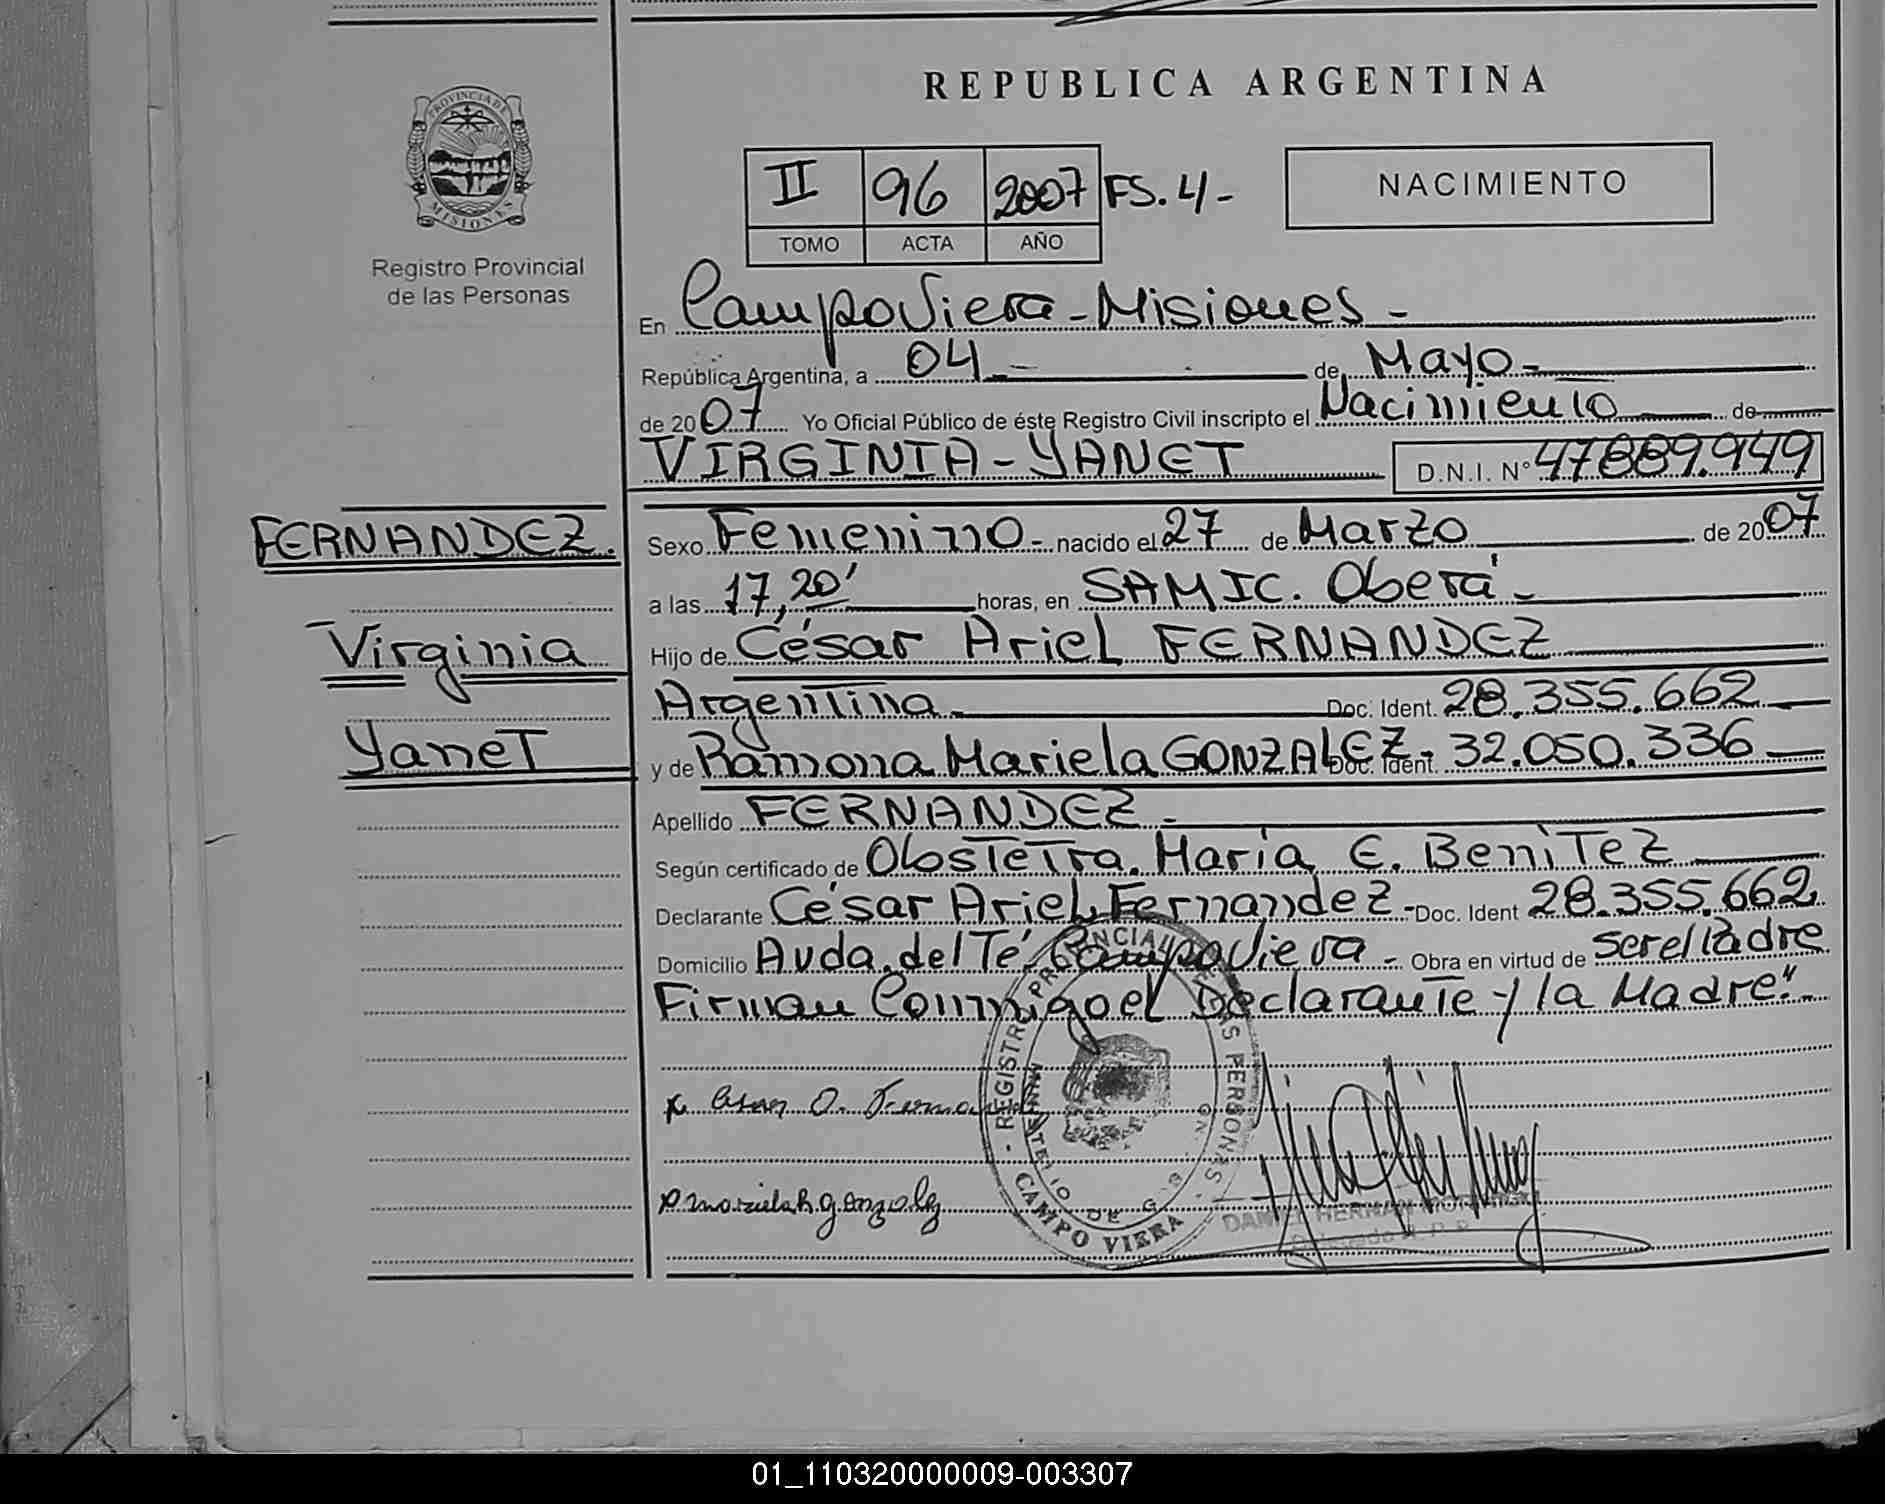 REPUBLICA ARGENTINA
PROVINCIA DE
MISIONES
Registro Provincial
de las Personas
II 96 2007 FS. 4-
TOMO ACTA AÑO
NACIMIENTO
En Campo Viera - Misiones -
República Argentina, a 04 - de Mayo -
de 2007 Yo Oficial Público de éste Registro Civil inscripto el Nacimiento de
VIRGINIA - YANET D.N.I. N° 47889.949
FERNANDEZ.
Virginia
Yanet
Sexo Femenino - nacido el 27 de Marzo de 2007
a las 17,20' horas, en SAMIC. Oberá -
Hijo de César Ariel FERNANDEZ
Argentina - Doc. Ident. 28.355.662
y de Ramona Mariela GONZALEZ - Doc. Ident. 32.050.336
Apellido FERNANDEZ -
Según certificado de Obstetra. María E. BeniTez
Declarante César Ariel Fernandez - Doc. Ident 28.355.662
Domicilio Avda. del Té. Campo Viera - Obra en virtud de ser el Padre
Firman Conmigo el Declarante y la Madre"-
REGISTRO PROVINCIAL DE LAS PERSONAS
CAMPO VIERA
x Cesar A. Ferna
R mariela R gonzalez
DANIEL HERNAN
01_110320000009-003307